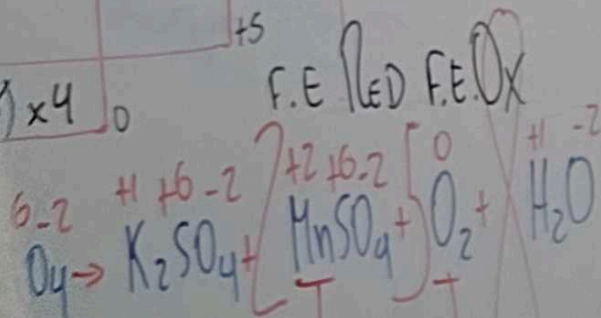 +5
) x4 0
F.E RED F.E.OX
6-2 +1 +6-2 +2 +6-2 0 +1 -2
O4→ K2SO4+ [MnSO4+] O2+ H2O